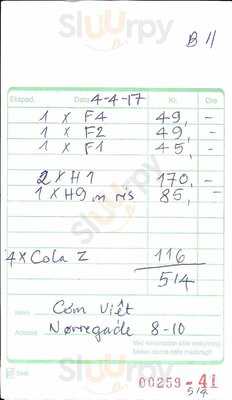 Slurrpy
B 11
Eksped. Dato 4-4-17 Kr. Øre
1 x F4 49, -
1 x F2 49, -
1 x F1 45, -
2 x H1 170, -
1 x H9 m ris 85, -
4 x Cola Z 116
514
Navn Cơm Việt
Adresse Nørregade 8-10
Salg
00259 - 41
514